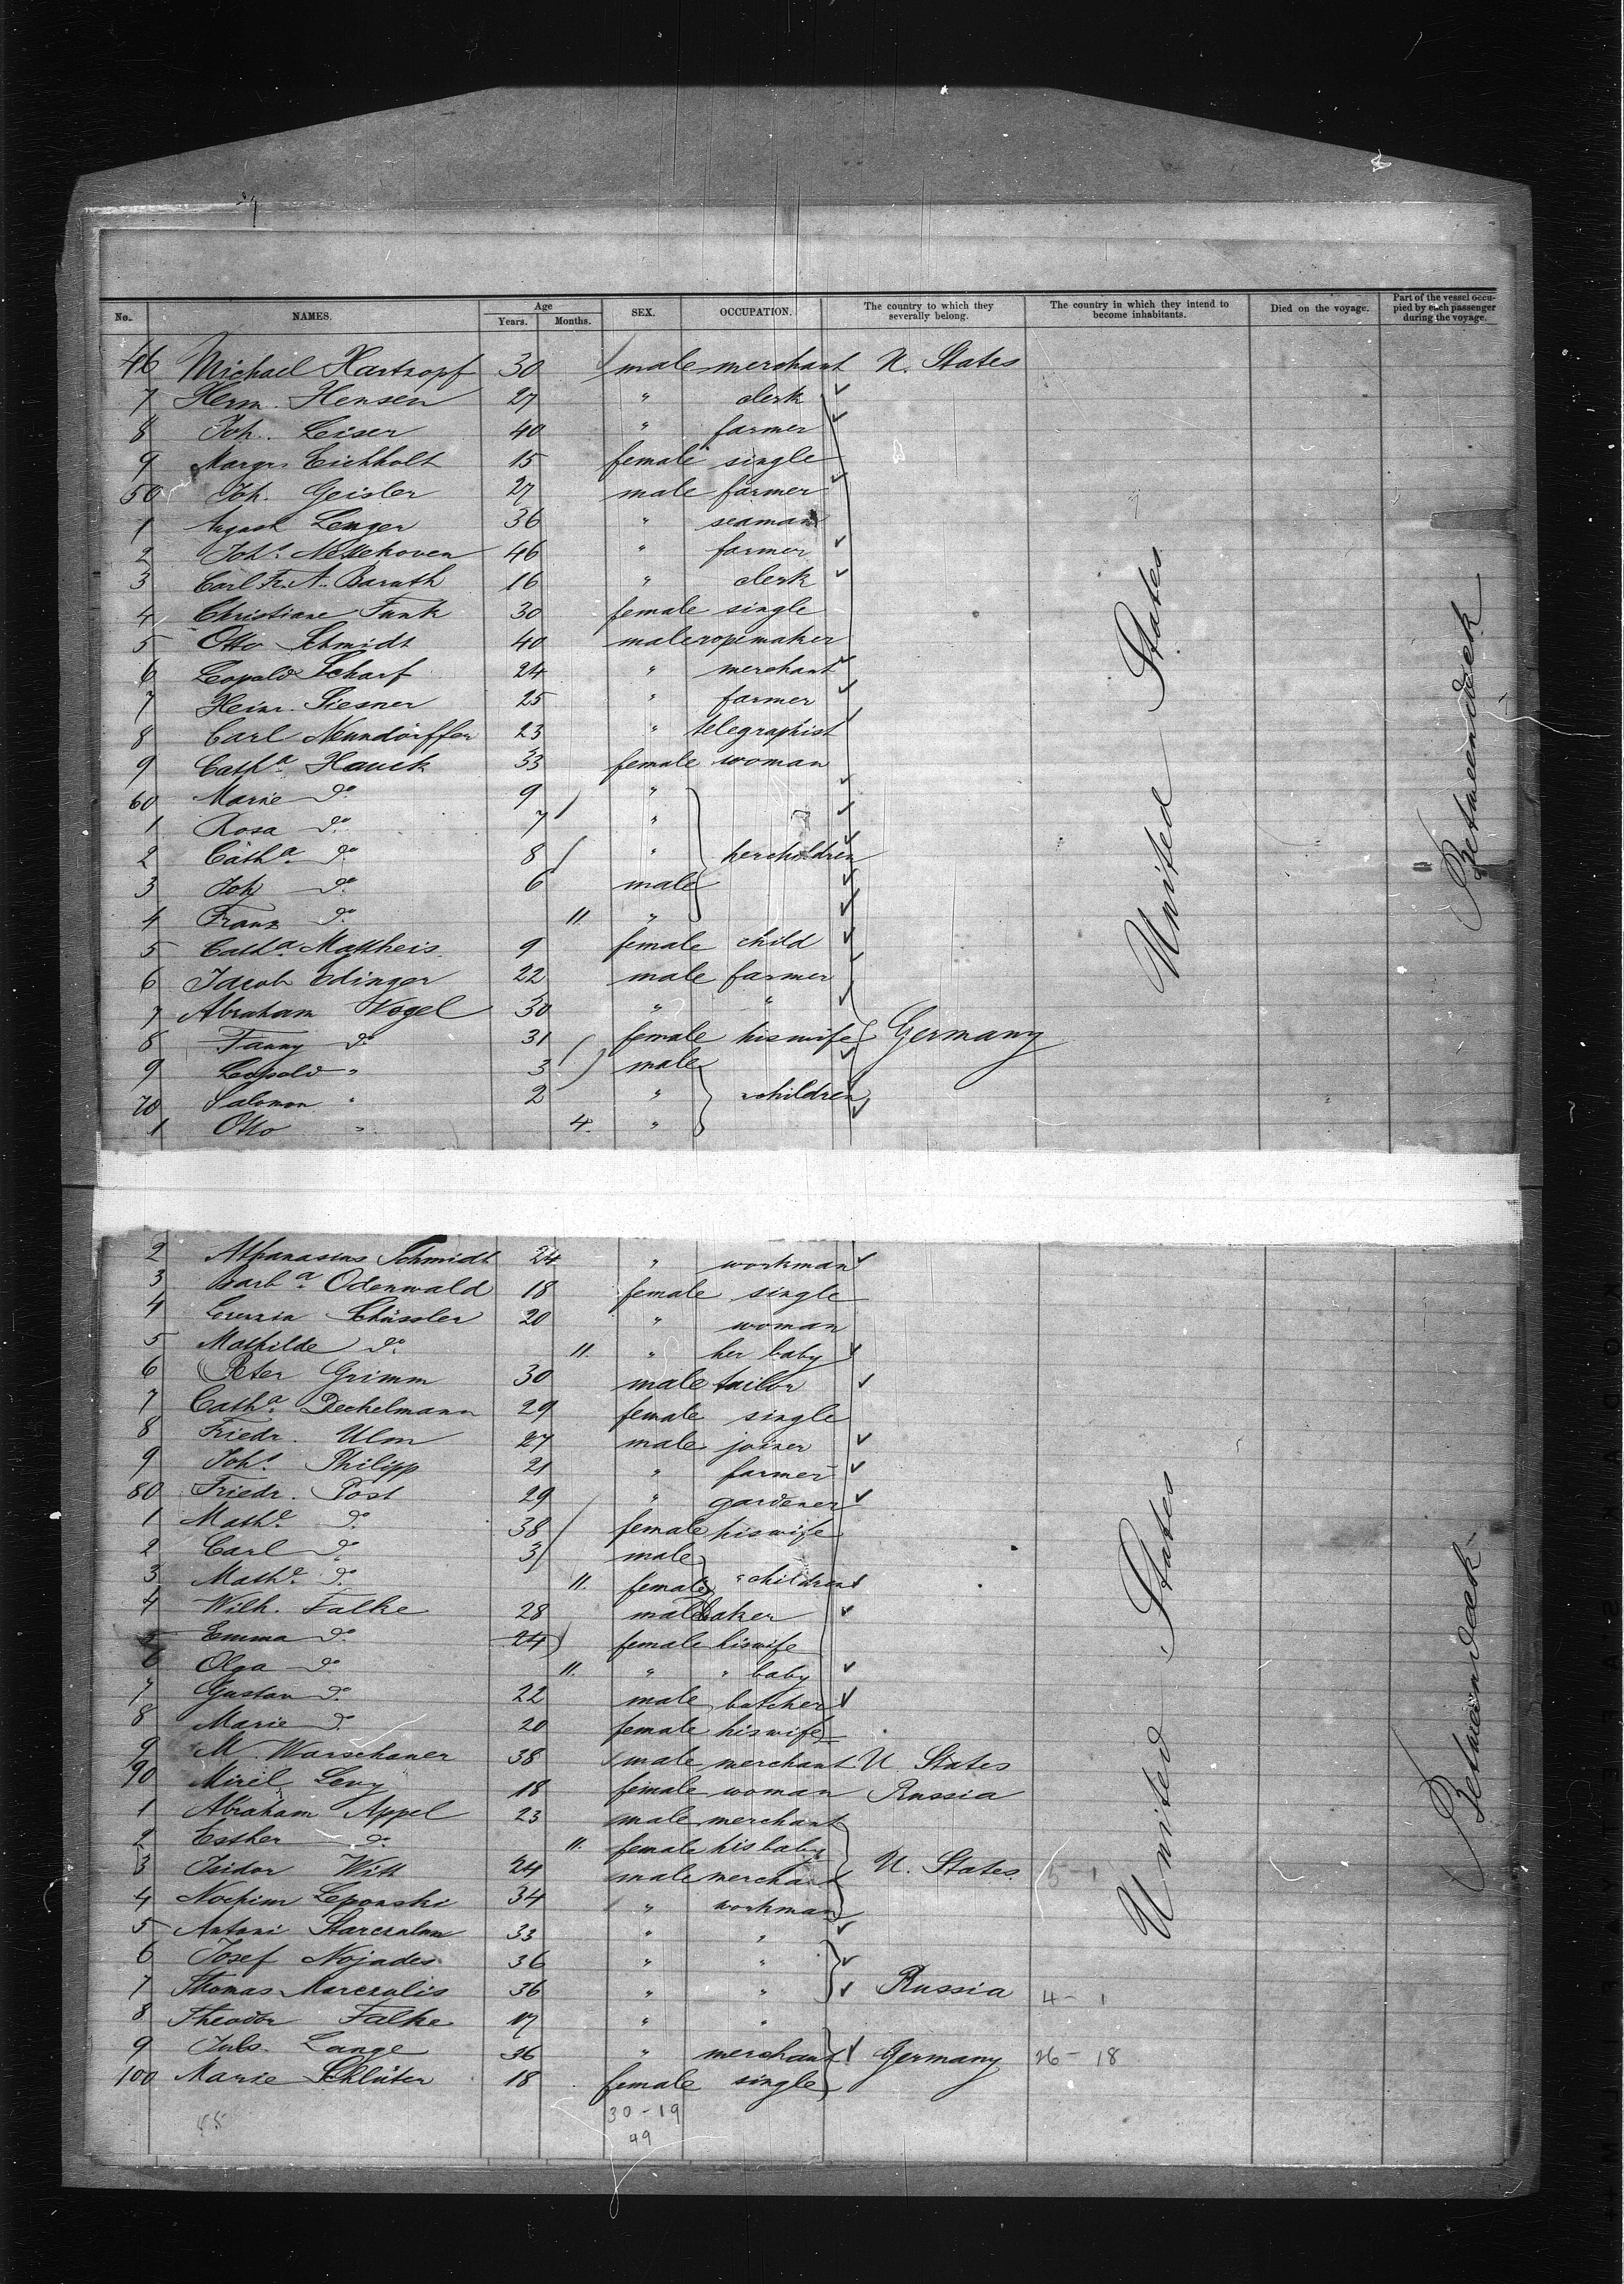 No. NAMES. Age Years. Months. SEX. OCCUPATION. The country to which they severally belong. The country in which they intend to become inhabitants. Died on the voyage. Part of the vessel occupied by each passenger during the voyage.
46 Michael Hartzopf 30 male merchant U. States
7 Herm. Hensen 27 " clerk
8 Joh. Leiser 40 " farmer
9 Margr. Eichholt 15 female single
50 Joh. Geisler 27 male farmer
1 August Lenger 36 " seaman
2 Johs. Nettehoven 46 " farmer
3 Carl Fr. A. Barath 16 " clerk
4 Christiane Funk 30 female single
5 Otto Schmidt 40 male ropemaker
6 Leopold Scharf 24 " merchant
7 Heinr. Siesner 25 " farmer
8 Carl Neundörffer 23 " telegraphist
9 Catha. Hauck 33 female woman
60 Marie do. 9 "
1 Rosa do. 7 "
2 Catha. do. 8 " her children
3 Joh do. 6 male
4 Franz do. 11. "
5 Catha. Mattheis 9 female child
6 Jacob Edinger 22 male farmer
7 Abraham Vogel 30 " "
8 Fanny do. 31 female his wife Germany
9 Leopold " 3 male
70 Salomon " 2 " children
1 Otto " 4. "
United States
Between deck
2 Athanasius Schmidt 24 " workman
3 Barba. Odenwald 18 female single
4 Schüssler 20 " woman
5 Mathilde do. 11. " her baby
6 Peter Grimm 30 male tailor
7 Catha. Dechelmann 29 female single
8 Friedr. Ulm 27 male joiner
9 Johs. Philipp 21 " farmer
80 Friedr. Post 29 " gardener
1 Mathe. do. 38 female his wife
2 Carl do. 3 male
3 Mathe. do. 11. female " children
4 Wilh. Falke 28 male baker
5 Emma do. 24 female his wife
6 Olga do. 11. " " baby
7 Gustav do. 22 male butcher
8 Marie do. 20 female his wife
9 M. Warschauer 38 male merchant U. States
90 Mirel Levy 18 female woman Russia
1 Abraham Appel 23 male merchant
2 Esther do. 11. female his baby
3 Isidor Witt 24 male merchant U. States. 5 - 1
4 Nochim Leponski 34 " workman
5 Antoni 33 " "
6 Josef Nojades 36 " "
7 Thomas Marczulis 36 " " Russia 4 - 1
8 Theodor Falke 17 " "
9 Juls. Lange 36 " merchant Germany 26 - 18
100 Marie Schlüter 18 female single
30 - 19
49
United States
Between deck